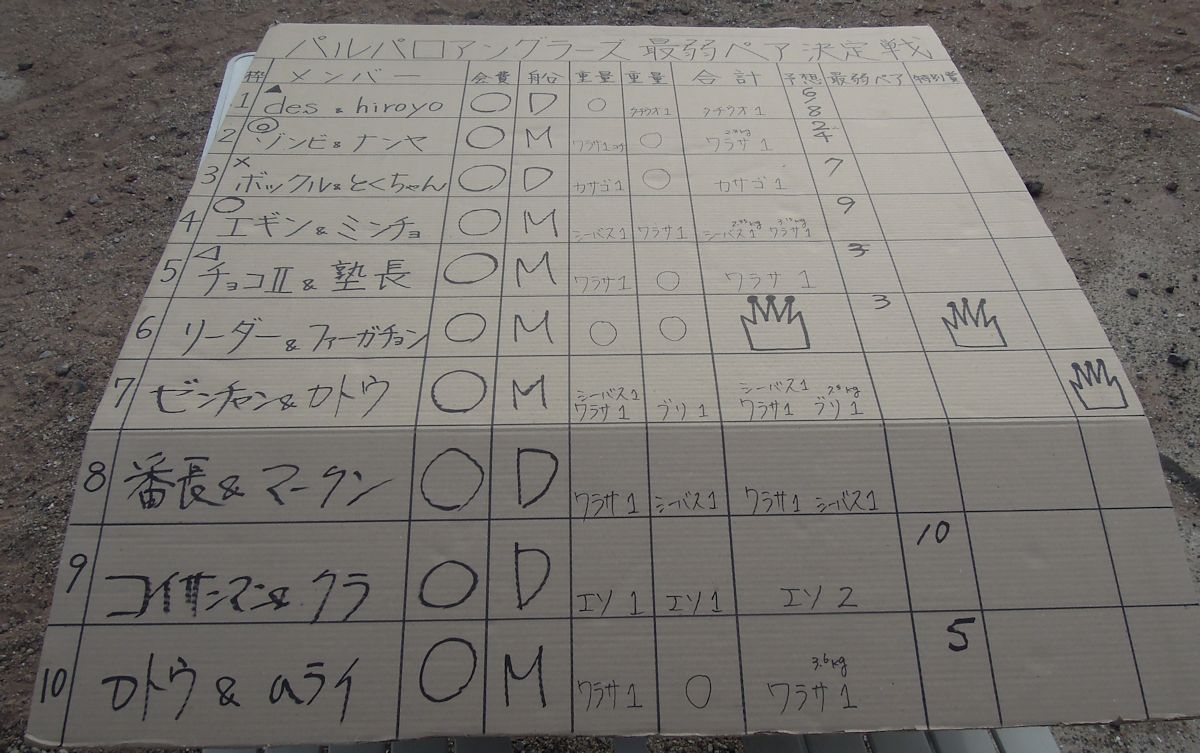 パルパロアングラーズ 最弱ペア決定戦
枠 メンバー 会費 船 重量 重量 合計 予想 最弱ペア 特別賞
1 ▲ des & hiroyo ○ D ○ タチウオ1 タチウオ1 6/8
2 ◎ ゾンビ&ナンヤ ○ M ワラサ1 ○ ワラサ1 2/4
3 × ボックル&とくちゃん ○ D カサゴ1 ○ カサゴ1 7
4 ○ エギン&ミンチョ ○ M シーバス1 ワラサ1 シーバス1 ワラサ1 9
5 △ チョコII&塾長 ○ M ワラサ1 ○ ワラサ1 3
6 リーダー&ファーガチョン ○ M ○ ○ 3
7 ゼンチャン&カトウ ○ M シーバス1 ワラサ1 ブリ1 シーバス1 ワラサ1 ブリ1
8 番長&マークン ○ D ワラサ1 シーバス1 ワラサ1 シーバス1
9 コイサンマン&クラ ○ D エソ1 エソ1 エソ2 10
10 ロトウ&aライ ○ M ワラサ1 ○ 3.6kg ワラサ1 5